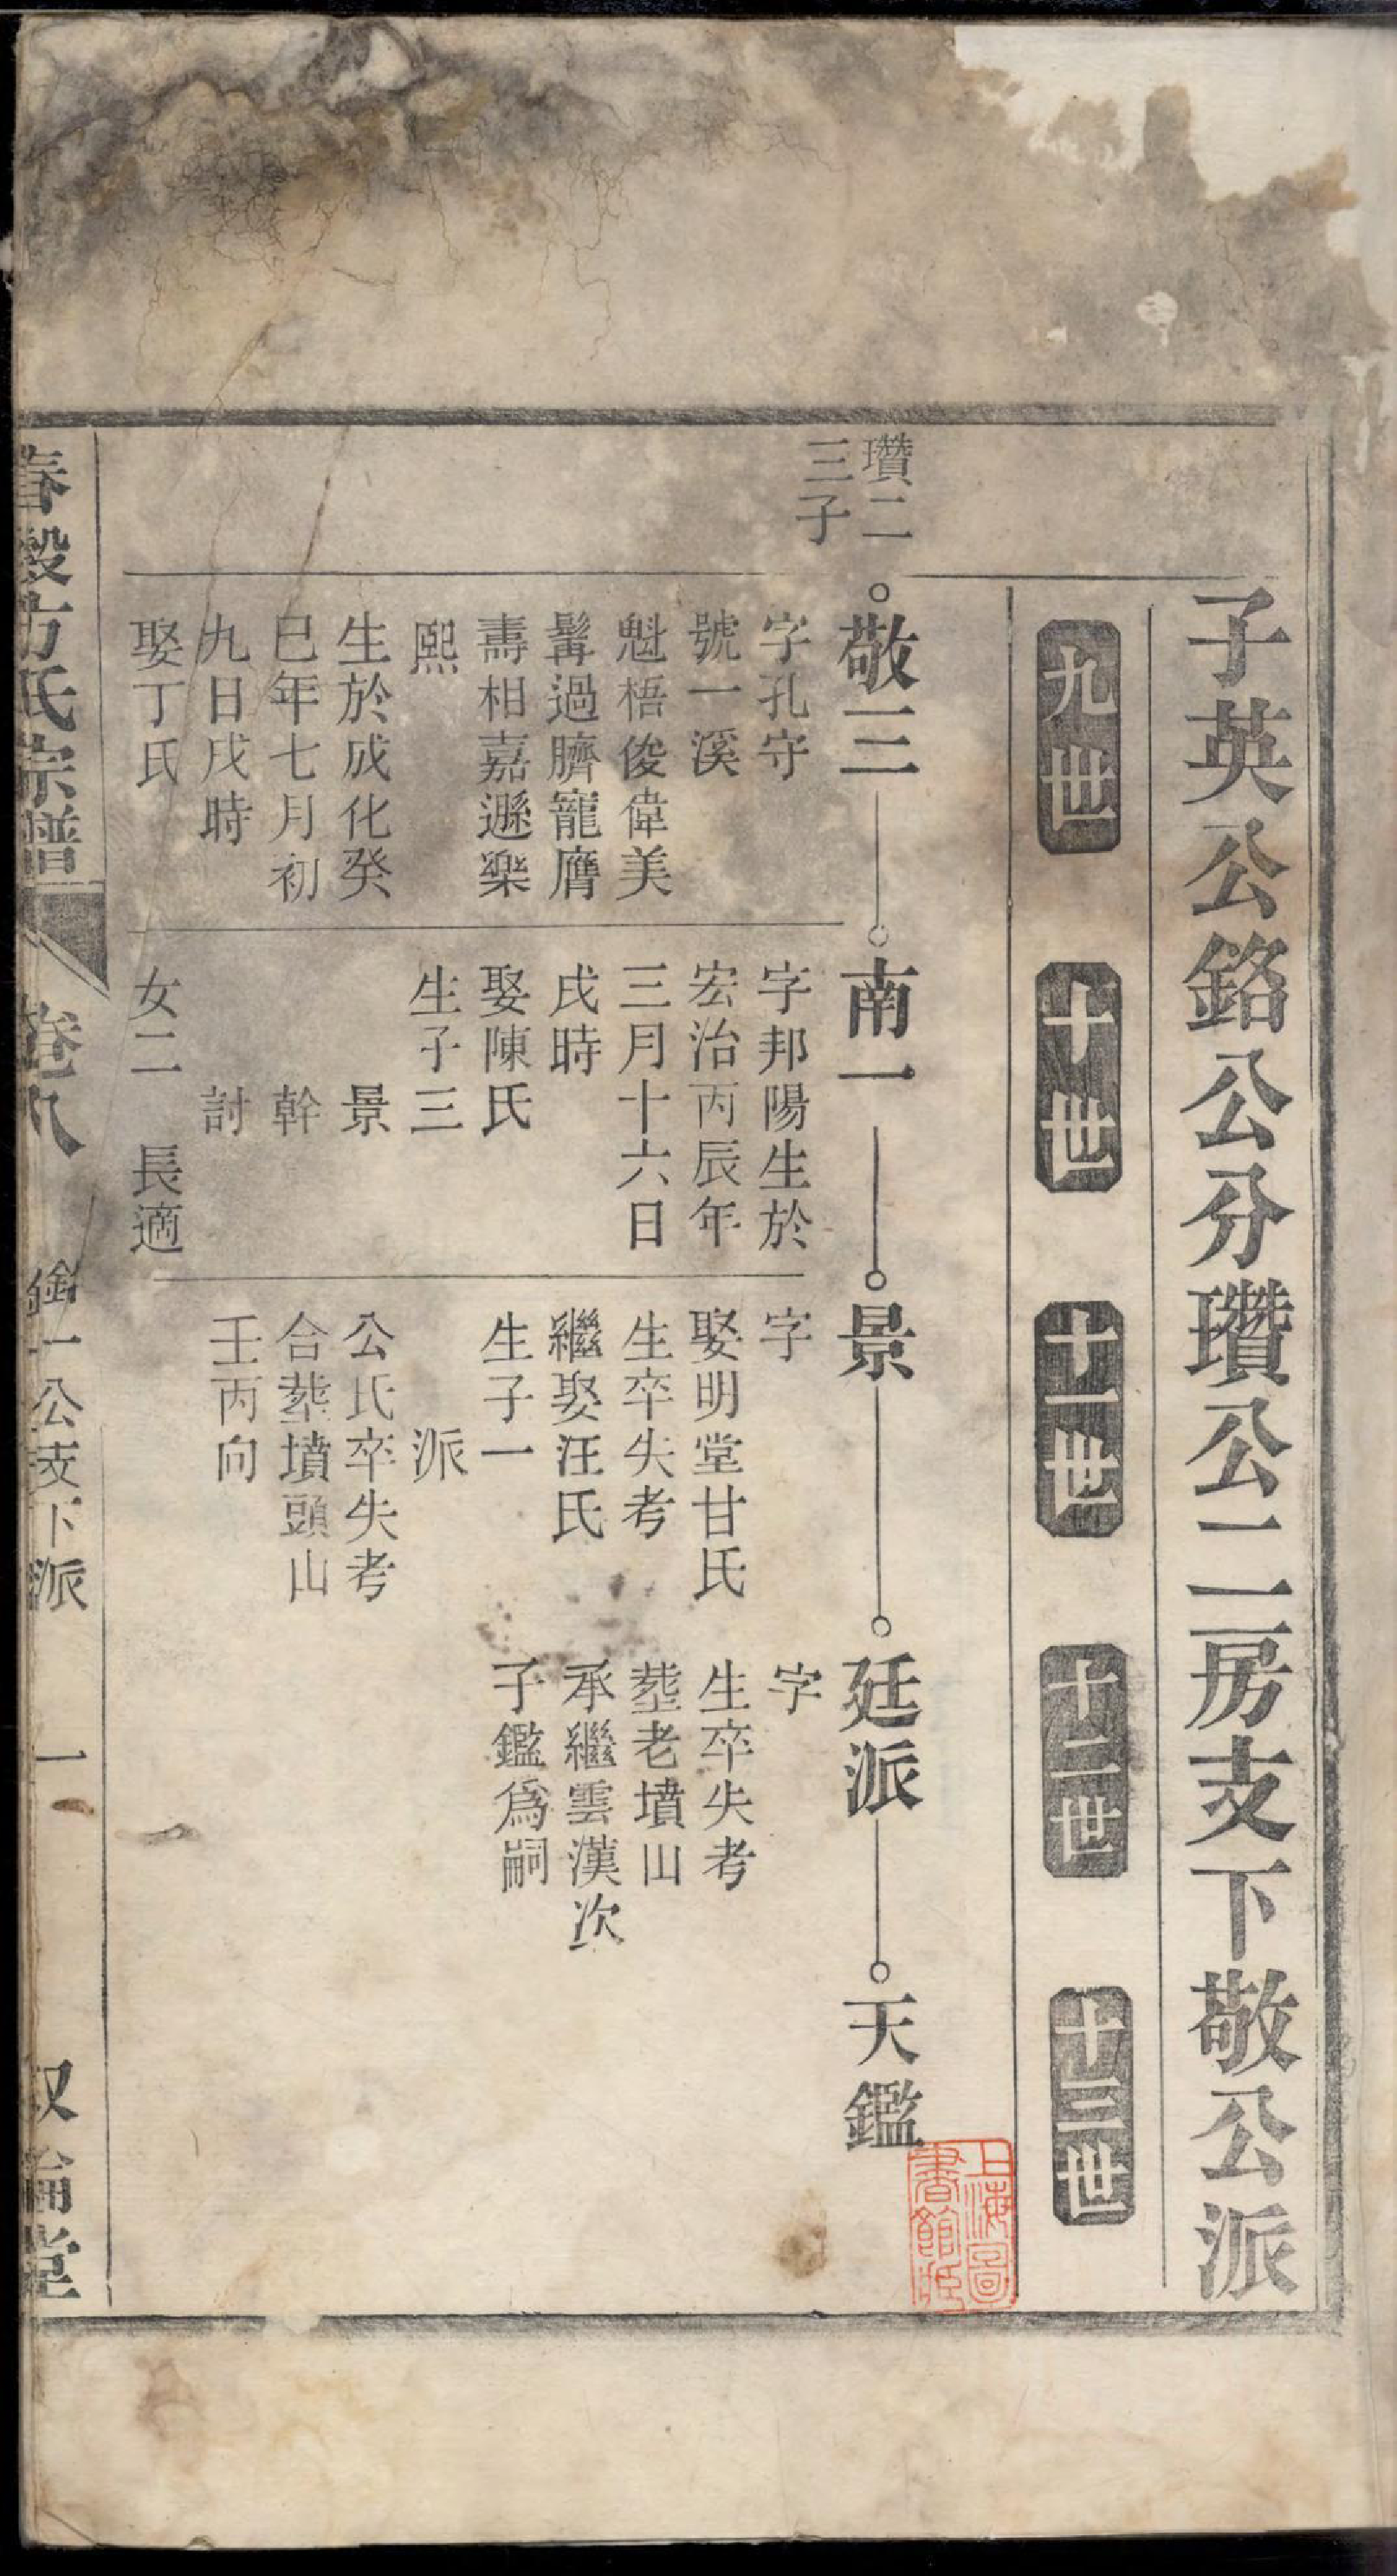 子英公銘公分瓚公二房支下敬公派
九世
十世
十一世
十二世
十三世
瓚二
三子
敬三
字孔守
號一溪
魁梧俊偉美
髯過臍寵膺
壽相嘉遯樂
熙
生於成化癸
巳年七月初
九日戌時
娶丁氏
南一
字邦陽生於
宏治丙辰年
三月十六日
戌時
娶陳氏
生子三
景
幹
討
女二 長適
景
字
娶明堂甘氏
生卒失考
繼娶汪氏
生子一
派
公氏卒失考
合塟墳頭山
壬丙向
廷派
字
生卒失考
塟老墳山
承繼雲漢次
子鑑爲嗣
天鑑
上海圖
書館藏
春穀方氏宗譜
卷八
一公支下派
一
敘倫堂